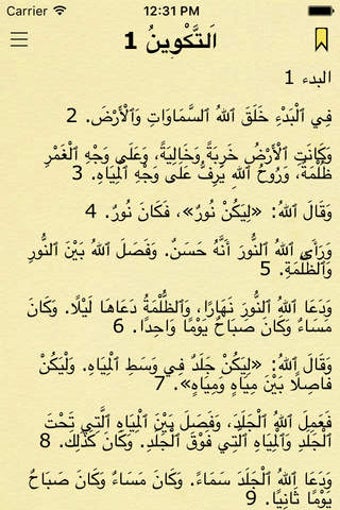 Carrier 12:31 PM
اَلتَّكْوِينُ 1
البدء 1
فِي ٱلْبَدْءِ خَلَقَ ٱللهُ ٱلسَّمَاوَاتِ وَٱلْأَرْضَ. 2
وَكَانَتِ ٱلْأَرْضُ خَرِبَةً وَخَالِيَةً، وَعَلَى وَجْهِ ٱلْغَمْرِ
ظُلْمَةٌ، وَرُوحُ ٱللهِ يَرِفُّ عَلَى وَجْهِ ٱلْمِيَاهِ. 3
وَقَالَ ٱللهُ: «لِيَكُنْ نُورٌ»، فَكَانَ نُورٌ. 4
وَرَأَى ٱللهُ ٱلنُّورَ أَنَّهُ حَسَنٌ. وَفَصَلَ ٱللهُ بَيْنَ ٱلنُّورِ
وَٱلظُّلْمَةِ. 5
وَدَعَا ٱللهُ ٱلنُّورَ نَهَارًا، وَٱلظُّلْمَةُ دَعَاهَا لَيْلًا. وَكَانَ
مَسَاءٌ وَكَانَ صَبَاحٌ يَوْمًا وَاحِدًا. 6
وَقَالَ ٱللهُ: «لِيَكُنْ جَلَدٌ فِي وَسَطِ ٱلْمِيَاهِ. وَلْيَكُنْ
فَاصِلًا بَيْنَ مِيَاهٍ وَمِيَاهٍ». 7
فَعَمِلَ ٱللهُ ٱلْجَلَدَ، وَفَصَلَ بَيْنَ ٱلْمِيَاهِ ٱلَّتِي تَحْتَ
ٱلْجَلَدِ وَٱلْمِيَاهِ ٱلَّتِي فَوْقَ ٱلْجَلَدِ. وَكَانَ كَذَلِكَ. 8
وَدَعَا ٱللهُ ٱلْجَلَدَ سَمَاءً. وَكَانَ مَسَاءٌ وَكَانَ صَبَاحٌ
يَوْمًا ثَانِيًا. 9